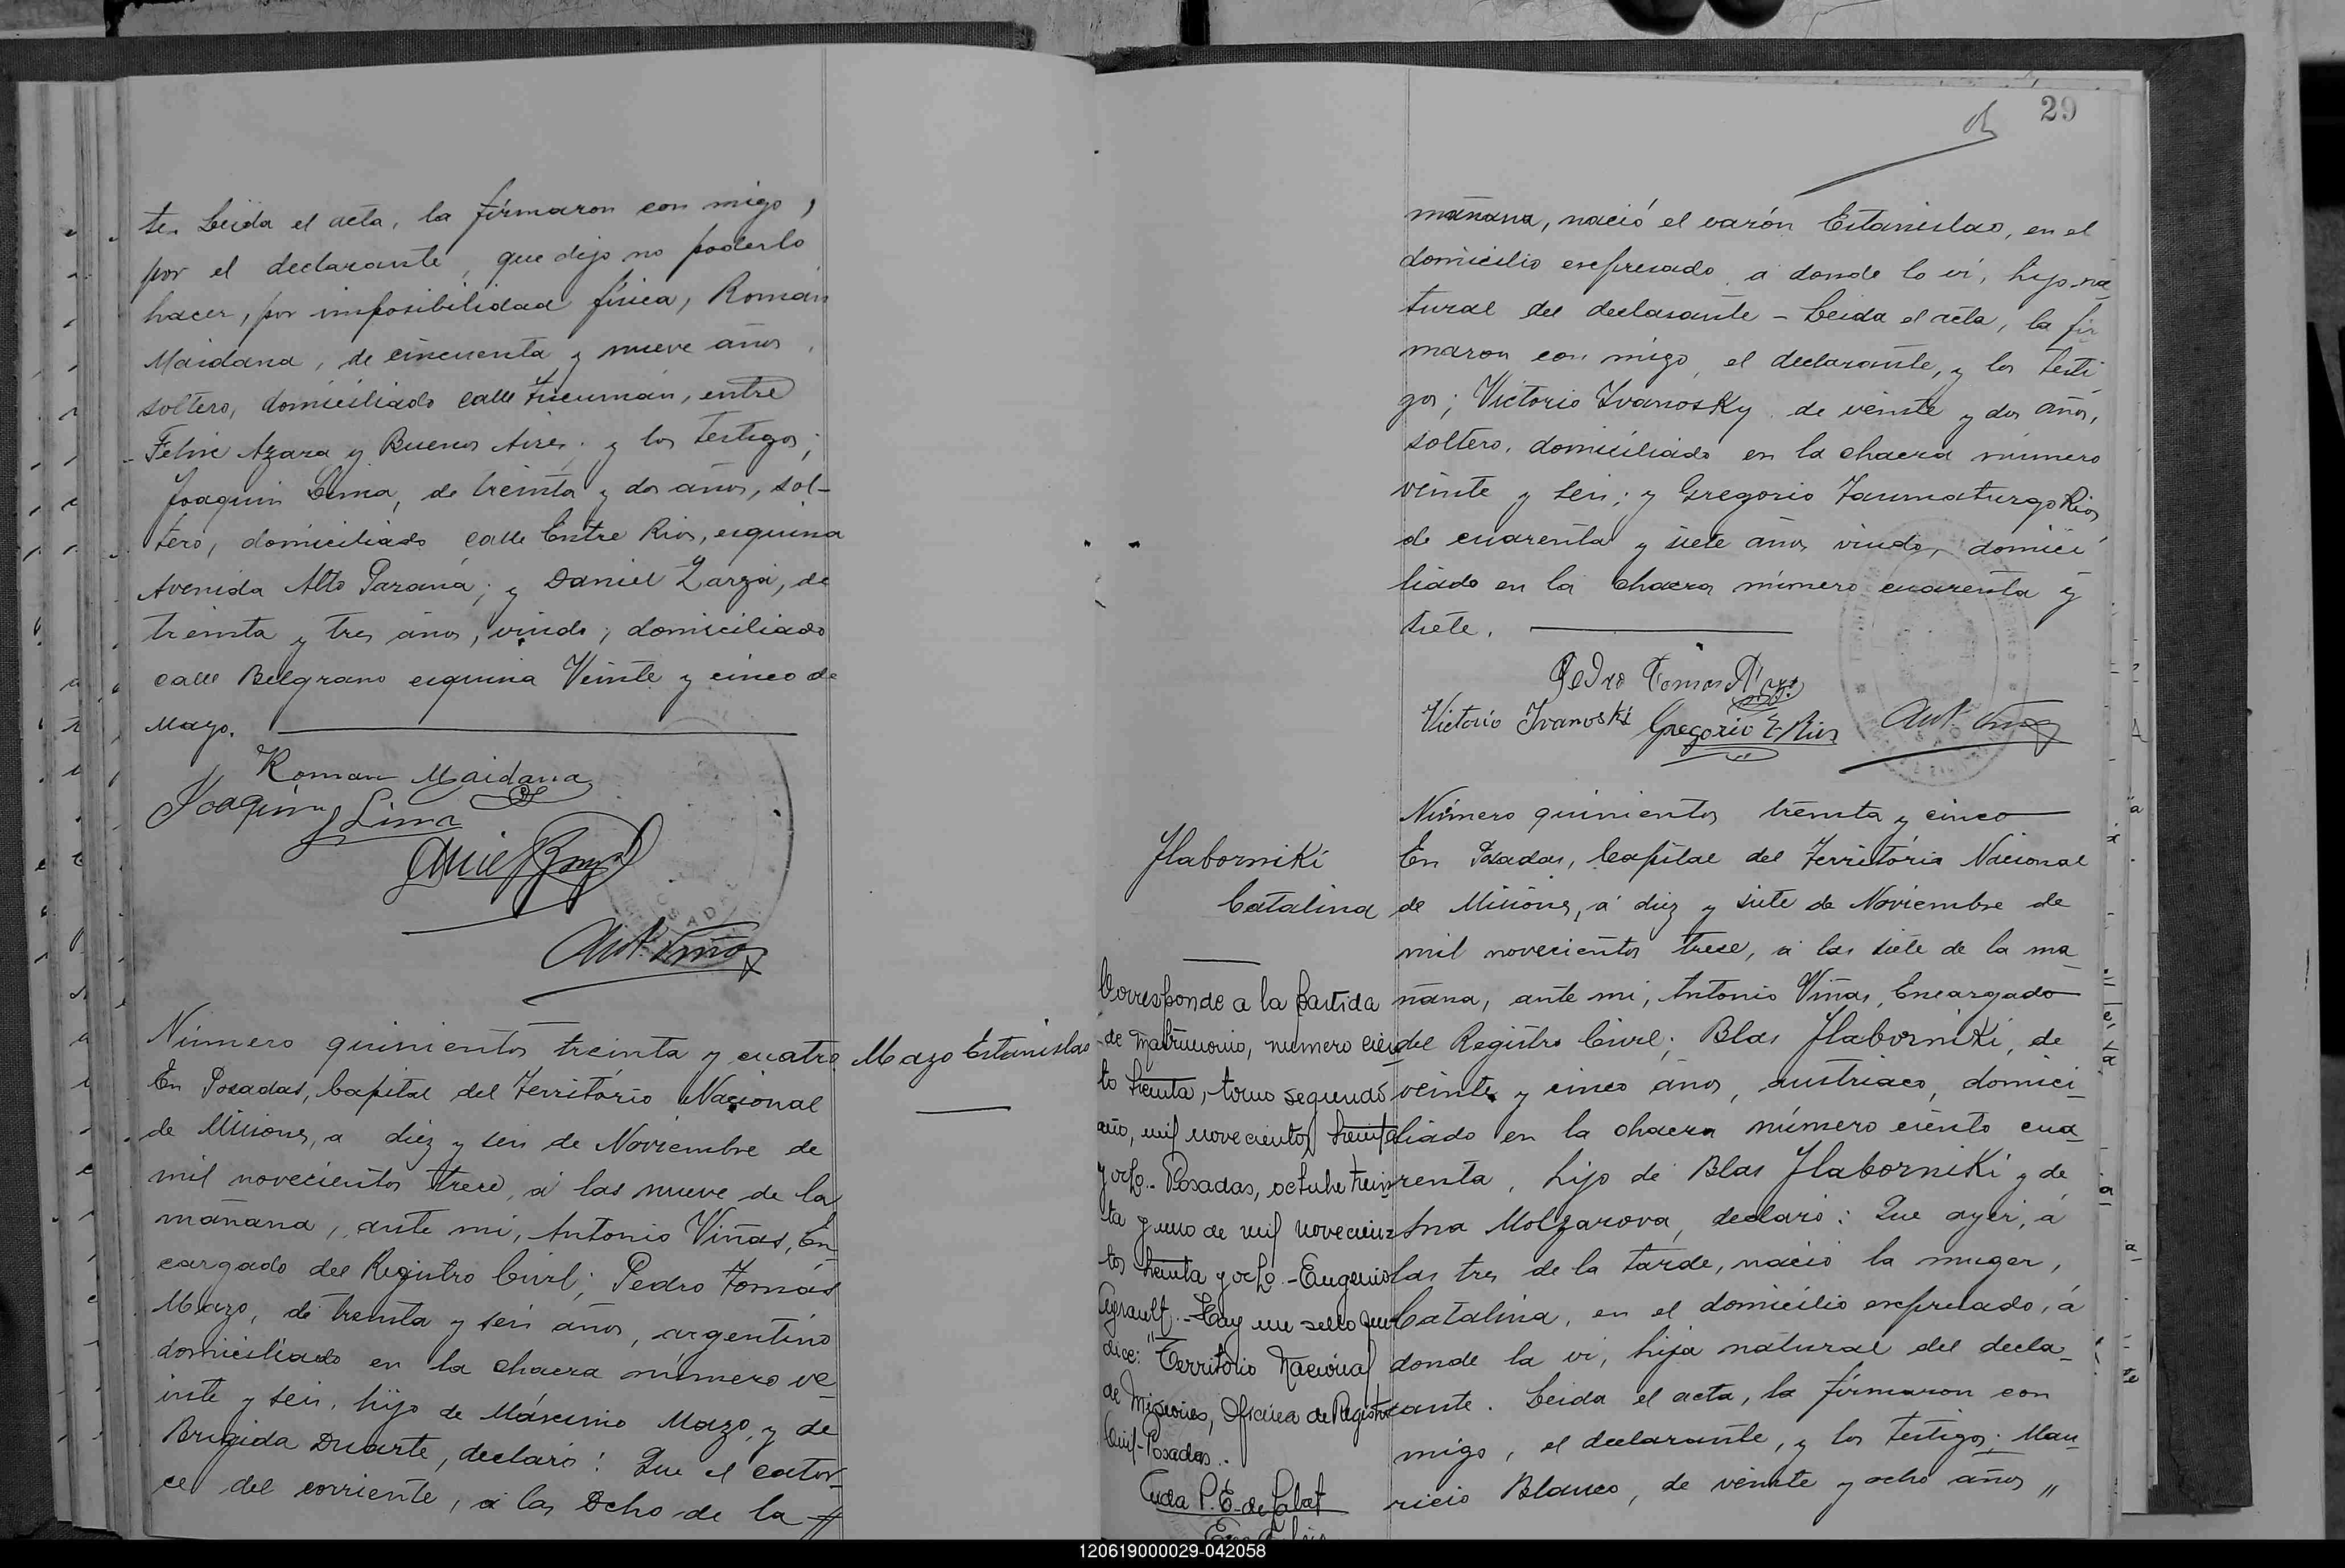 te. Leida el acta, la firmaron con migo,
por el declarante, que dijo no poderlo
hacer, por imposibilidad física, Román
Maidana, de cincuenta y nueve años,
soltero, domiciliado calle Tucumán, entre
Felix Azara y Buenos Aires; y los testigos;
Joaquin Lima, de treinta y dos años, sol-
tero, domiciliado calle Entre Rios, esquina
Avenida Alto Paraná; y Daniel Zarza, de
treinta y tres años, viudo, domiciliado
calle Belgrano esquina Veinte y cinco de
Mayo.
Roman Maidana
Joaquin Lima
Ant. Viñas
Número quinientos treinta y cuatro
En Posadas, Capital del Território Nacional
de Misiones, a diez y seis de Noviembre de
mil novecientos trece, á las nueve de la
mañana, ante mi, Antonio Viñas, En
cargado del Registro Civil; Pedro Tomás
Mazo, de treinta y seis años, argentino
domiciliado en la chacra número ve-
inte y seis, hijo de Máximo Mazo, y de
Brigida Duarte, declaró: Que el cator-
ce del corriente, á las ocho de la
Mazo Estanislao
29
mañana, nació el varón Estanislao, en el
domicilio expresado, á donde lo vi, hijo na-
tural del declarante - Leida el acta, la fir
maron con migo, el declarante, y los testi-
gos; Victorio Ivanosky de veinte y dos años,
soltero, domiciliado en la chacra número
veinte y seis; y Gregorio Taumaturgo Rios
de cuarenta y siete años viudo, domici
liado en la chacra número cuarenta y
siete.
Pedro Tomas
Victorio Ivanoski Gregorio T. Rios Ant. Viñas
Jlaborniki
Catalina
Corresponde a la partida
de matrimonio, número cien
to treinta, tomo segundo
año, mil novecientos treinta
y ocho.- Posadas, octubre trein
ta y uno de mil novecien-
tos treinta y ocho.- Eugenio
.- Hay un sello que
dice: "Territorio Nacional
de Misiones, Oficina de Registro
Civil-Posadas.
P. E. de Labat
Número quinientos treinta y cinco
En Posadas, Capital del Território Nacional
de Misiones, á diez y siete de Noviembre de
mil novecientos trece, á las siete de la ma-
ñana, ante mi, Antonio Viñas, Encargado
del Registro Civil; Blas Jlaborniki, de
veinte y cinco años, austriaco, domici-
liado en la chacra número ciento cua-
renta, hijo de Blas Jlaborniki y de
Ana Molzarova, declaró: Que ayer, á
las tres de la tarde, nació la muger,
Catalina, en el domicilio expresado, á
donde la vi, hija natural del decla-
rante. Leida el acta, la firmaron con
migo, el declarante, y los testigos; Mau
ricio Blanco, de veinte y ocho años "
120619000029-042058